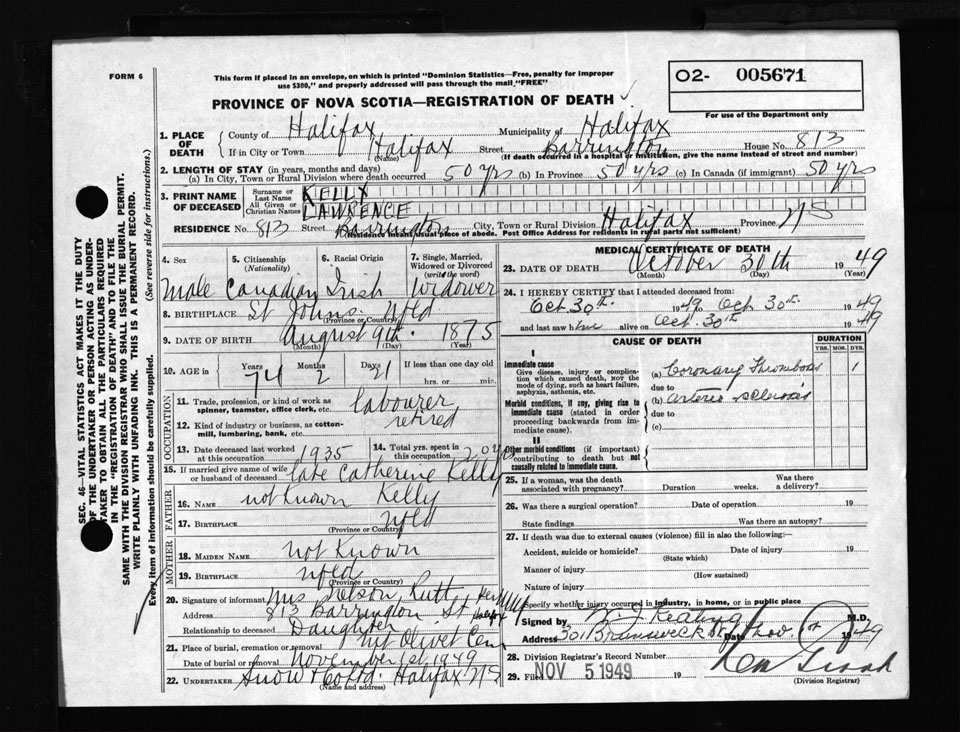 FORM 6
This form if placed in an envelope, on which is printed "Dominion Statistics—Free, penalty for improper
use $300," and properly addressed will pass through the mail "FREE"
O2- 005671
For use of the Department only
PROVINCE OF NOVA SCOTIA—REGISTRATION OF DEATH
1. PLACE OF DEATH County of Halifax Municipality of Halifax
If in City or Town Halifax (Name) Street Barrington House No. 813
(If death occurred in a hospital or institution, give the name instead of street and number)
2. LENGTH OF STAY (in years, months and days)
(a) In City, Town or Rural Division where death occurred 50 yrs (b) In Province 50 yrs (c) In Canada (if immigrant) 50 yrs
3. PRINT NAME OF DECEASED Surname or Last Name KELLY
All Given or Christian Names LAWRENCE
RESIDENCE No. 813 Street Barrington City, Town or Rural Division Halifax Province NS
(Residence means usual place of abode. Post Office Address for residents in rural parts not sufficient)
4. Sex 5. Citizenship (Nationality) 6. Racial Origin 7. Single, Married, Widowed or Divorced (write the word)
Male Canadian Irish Widower
8. BIRTHPLACE St Johns Nfld
(Province or Country)
9. DATE OF BIRTH August 9th 1875
(Month) (Day) (Year)
10. AGE in Years Months Days If less than one day old
74 2 21 hrs. or min.
OCCUPATION
11. Trade, profession, or kind of work as spinner, teamster, office clerk, etc. labourer
12. Kind of industry or business, as cotton-mill, lumbering, bank, etc. retired
13. Date deceased last worked at this occupation 1935 14. Total yrs. spent in this occupation 20 yrs
15. If married give name of wife or husband of deceased late Catherine Kelly
FATHER
16. NAME not Known Kelly
17. BIRTHPLACE Nfld
(Province or Country)
MOTHER
18. MAIDEN NAME not Known
19. BIRTHPLACE Nfld
(Province or Country)
20. Signature of informant Mrs Nelson Rutt
Address 813 Barrington St Halifax
Relationship to deceased Daughter
21. Place of burial, cremation or removal Mt Olivet Cem
Date of burial or removal November 1st 1949
22. UNDERTAKER Snow & Co Ltd. Halifax NS
(Name and address)
MEDICAL CERTIFICATE OF DEATH
23. DATE OF DEATH October 30th 1949
(Month) (Day) (Year)
24. I HEREBY CERTIFY that I attended deceased from:
Oct. 30th 1949 Oct. 30th 1949
and last saw him alive on Oct. 30th 1949
CAUSE OF DEATH
DURATION
YRS. MOS. DYS.
I
Immediate cause
Give disease, injury or complication which caused death, NOT the mode of dying, such as heart failure, asphyxia, asthenia, etc.
(a) Coronary Thrombosis 1
due to
Morbid conditions, if any, giving rise to immediate cause (stated in order proceeding backwards from immediate cause).
(b) arterio-sclerosis
due to
(c)
II
Other morbid conditions (if important) contributing to death but not causally related to immediate cause.
25. If a woman, was the death associated with pregnancy? Duration weeks. Was there a delivery?
26. Was there a surgical operation? Date of operation 19
State findings Was there an autopsy?
27. If death was due to external causes (violence) fill in also the following:—
Accident, suicide or homicide? Date of injury 19
(State which)
Manner of injury
(How sustained)
Nature of injury
Specify whether injury occurred in industry, in home, or in public place
Signed by Keating M.D.
Address 301 Brunswick St Date Nov. 1949
28. Division Registrar's Record Number
29. Filed NOV 5 1949 19
(Division Registrar)
SEC. 46—VITAL STATISTICS ACT MAKES IT THE DUTY
OF THE UNDERTAKER OR PERSON ACTING AS UNDER-
TAKER TO OBTAIN ALL THE PARTICULARS REQUIRED
IN THE "REGISTRATION OF DEATH" AND TO FILE THE
SAME WITH THE DIVISION REGISTRAR WHO SHALL ISSUE THE BURIAL PERMIT.
WRITE PLAINLY WITH UNFADING INK. THIS IS A PERMANENT RECORD.
Every item of information should be carefully supplied. (See reverse side for instructions.)